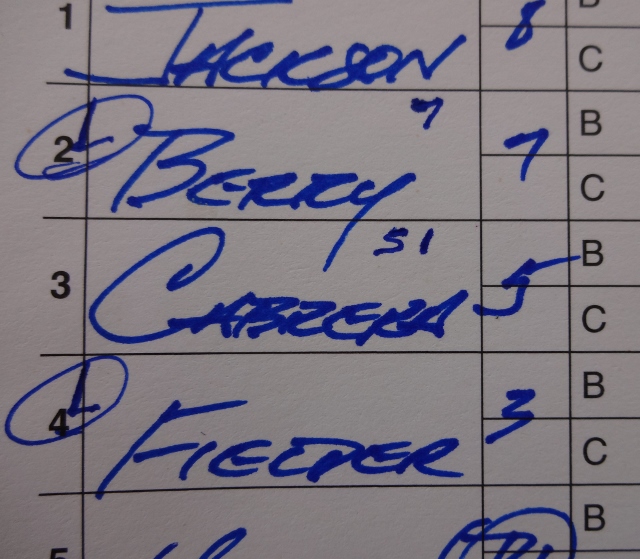 1 JACKSON 8 B
C
7
2 L BERRY 7 B
C
51
3 CABRERA 5 B
C
4 L FIELDER 3 B
C
5 B